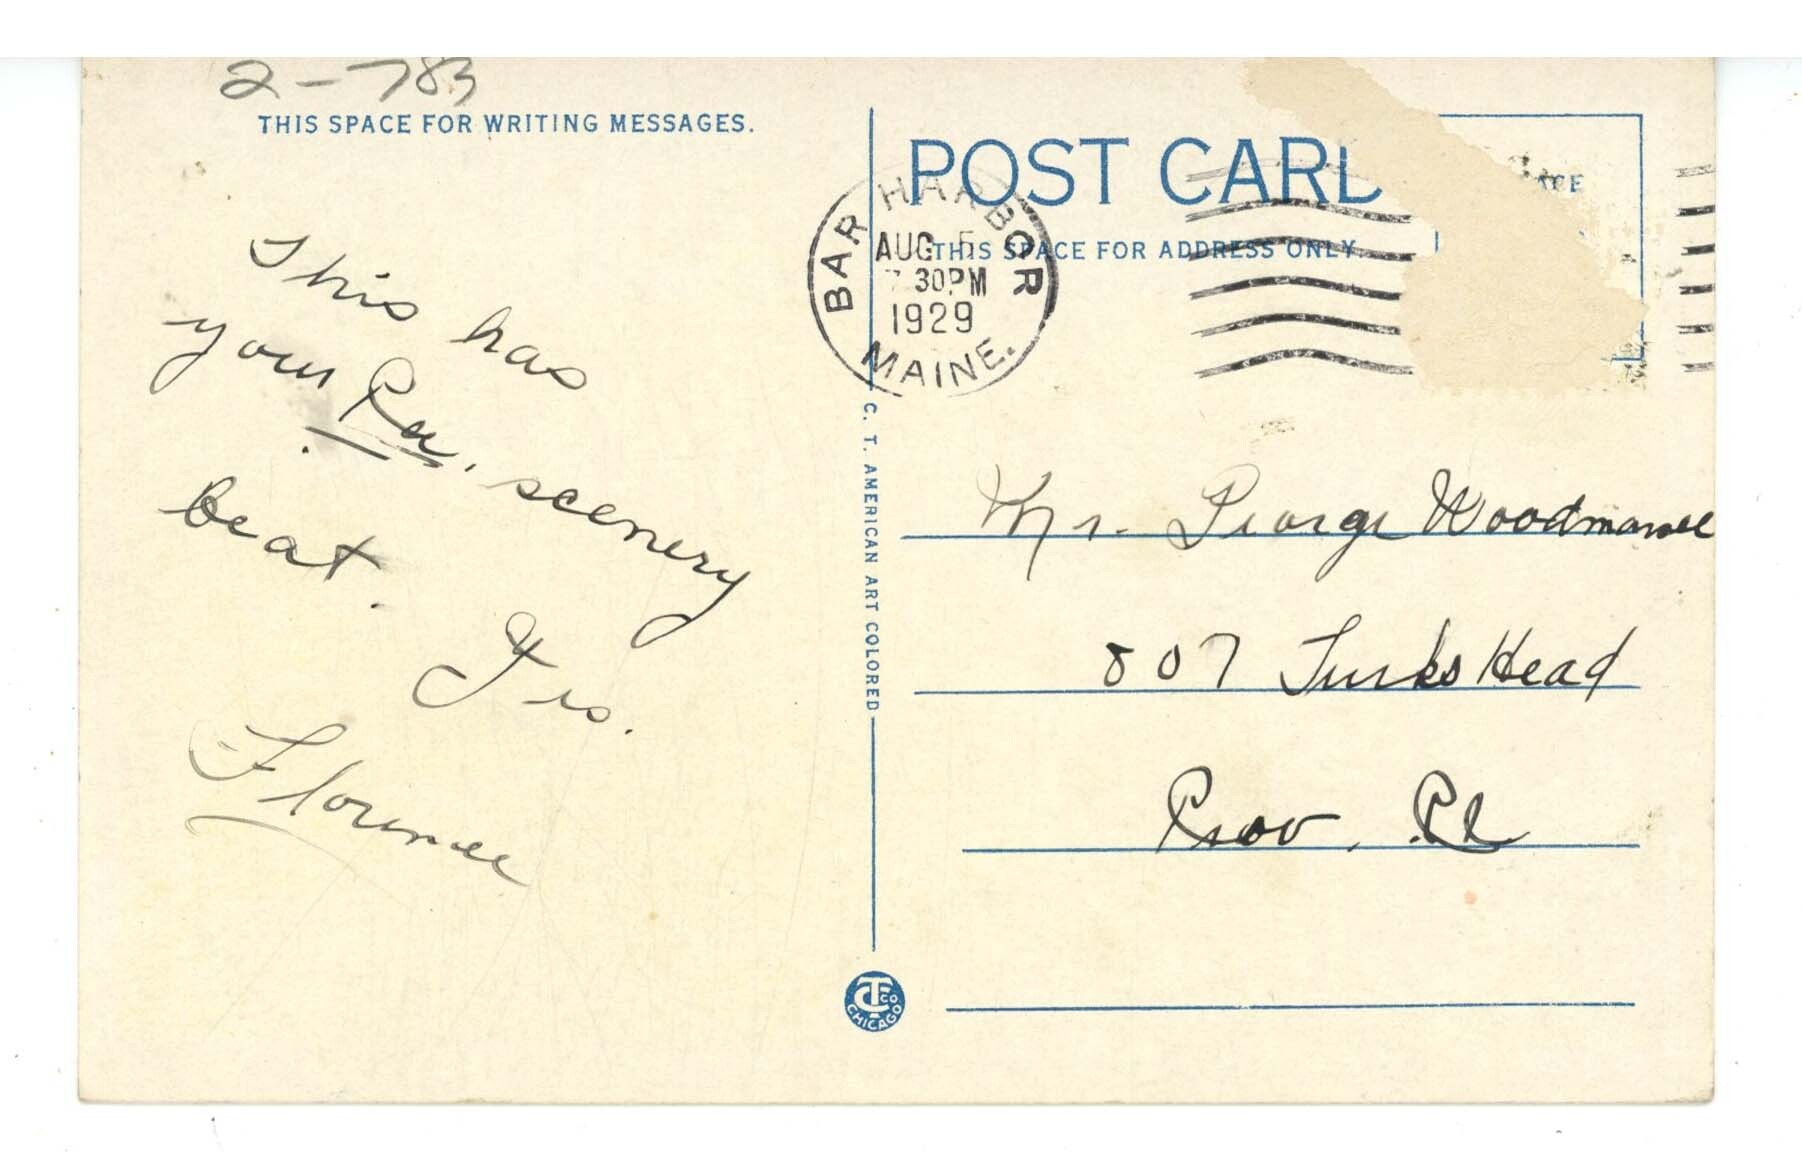 2-783
THIS SPACE FOR WRITING MESSAGES.
This has
your Pa. scenery
beat.
Yrs.
Florence
BAR HARBOR
AUG 5
7 30PM
1929
MAINE.
POST CARD
THIS SPACE FOR ADDRESS ONLY.
C. T. AMERICAN ART COLORED
Mr. George Woodmansee
807 Turks Head
Prov. RI
C T CO
CHICAGO